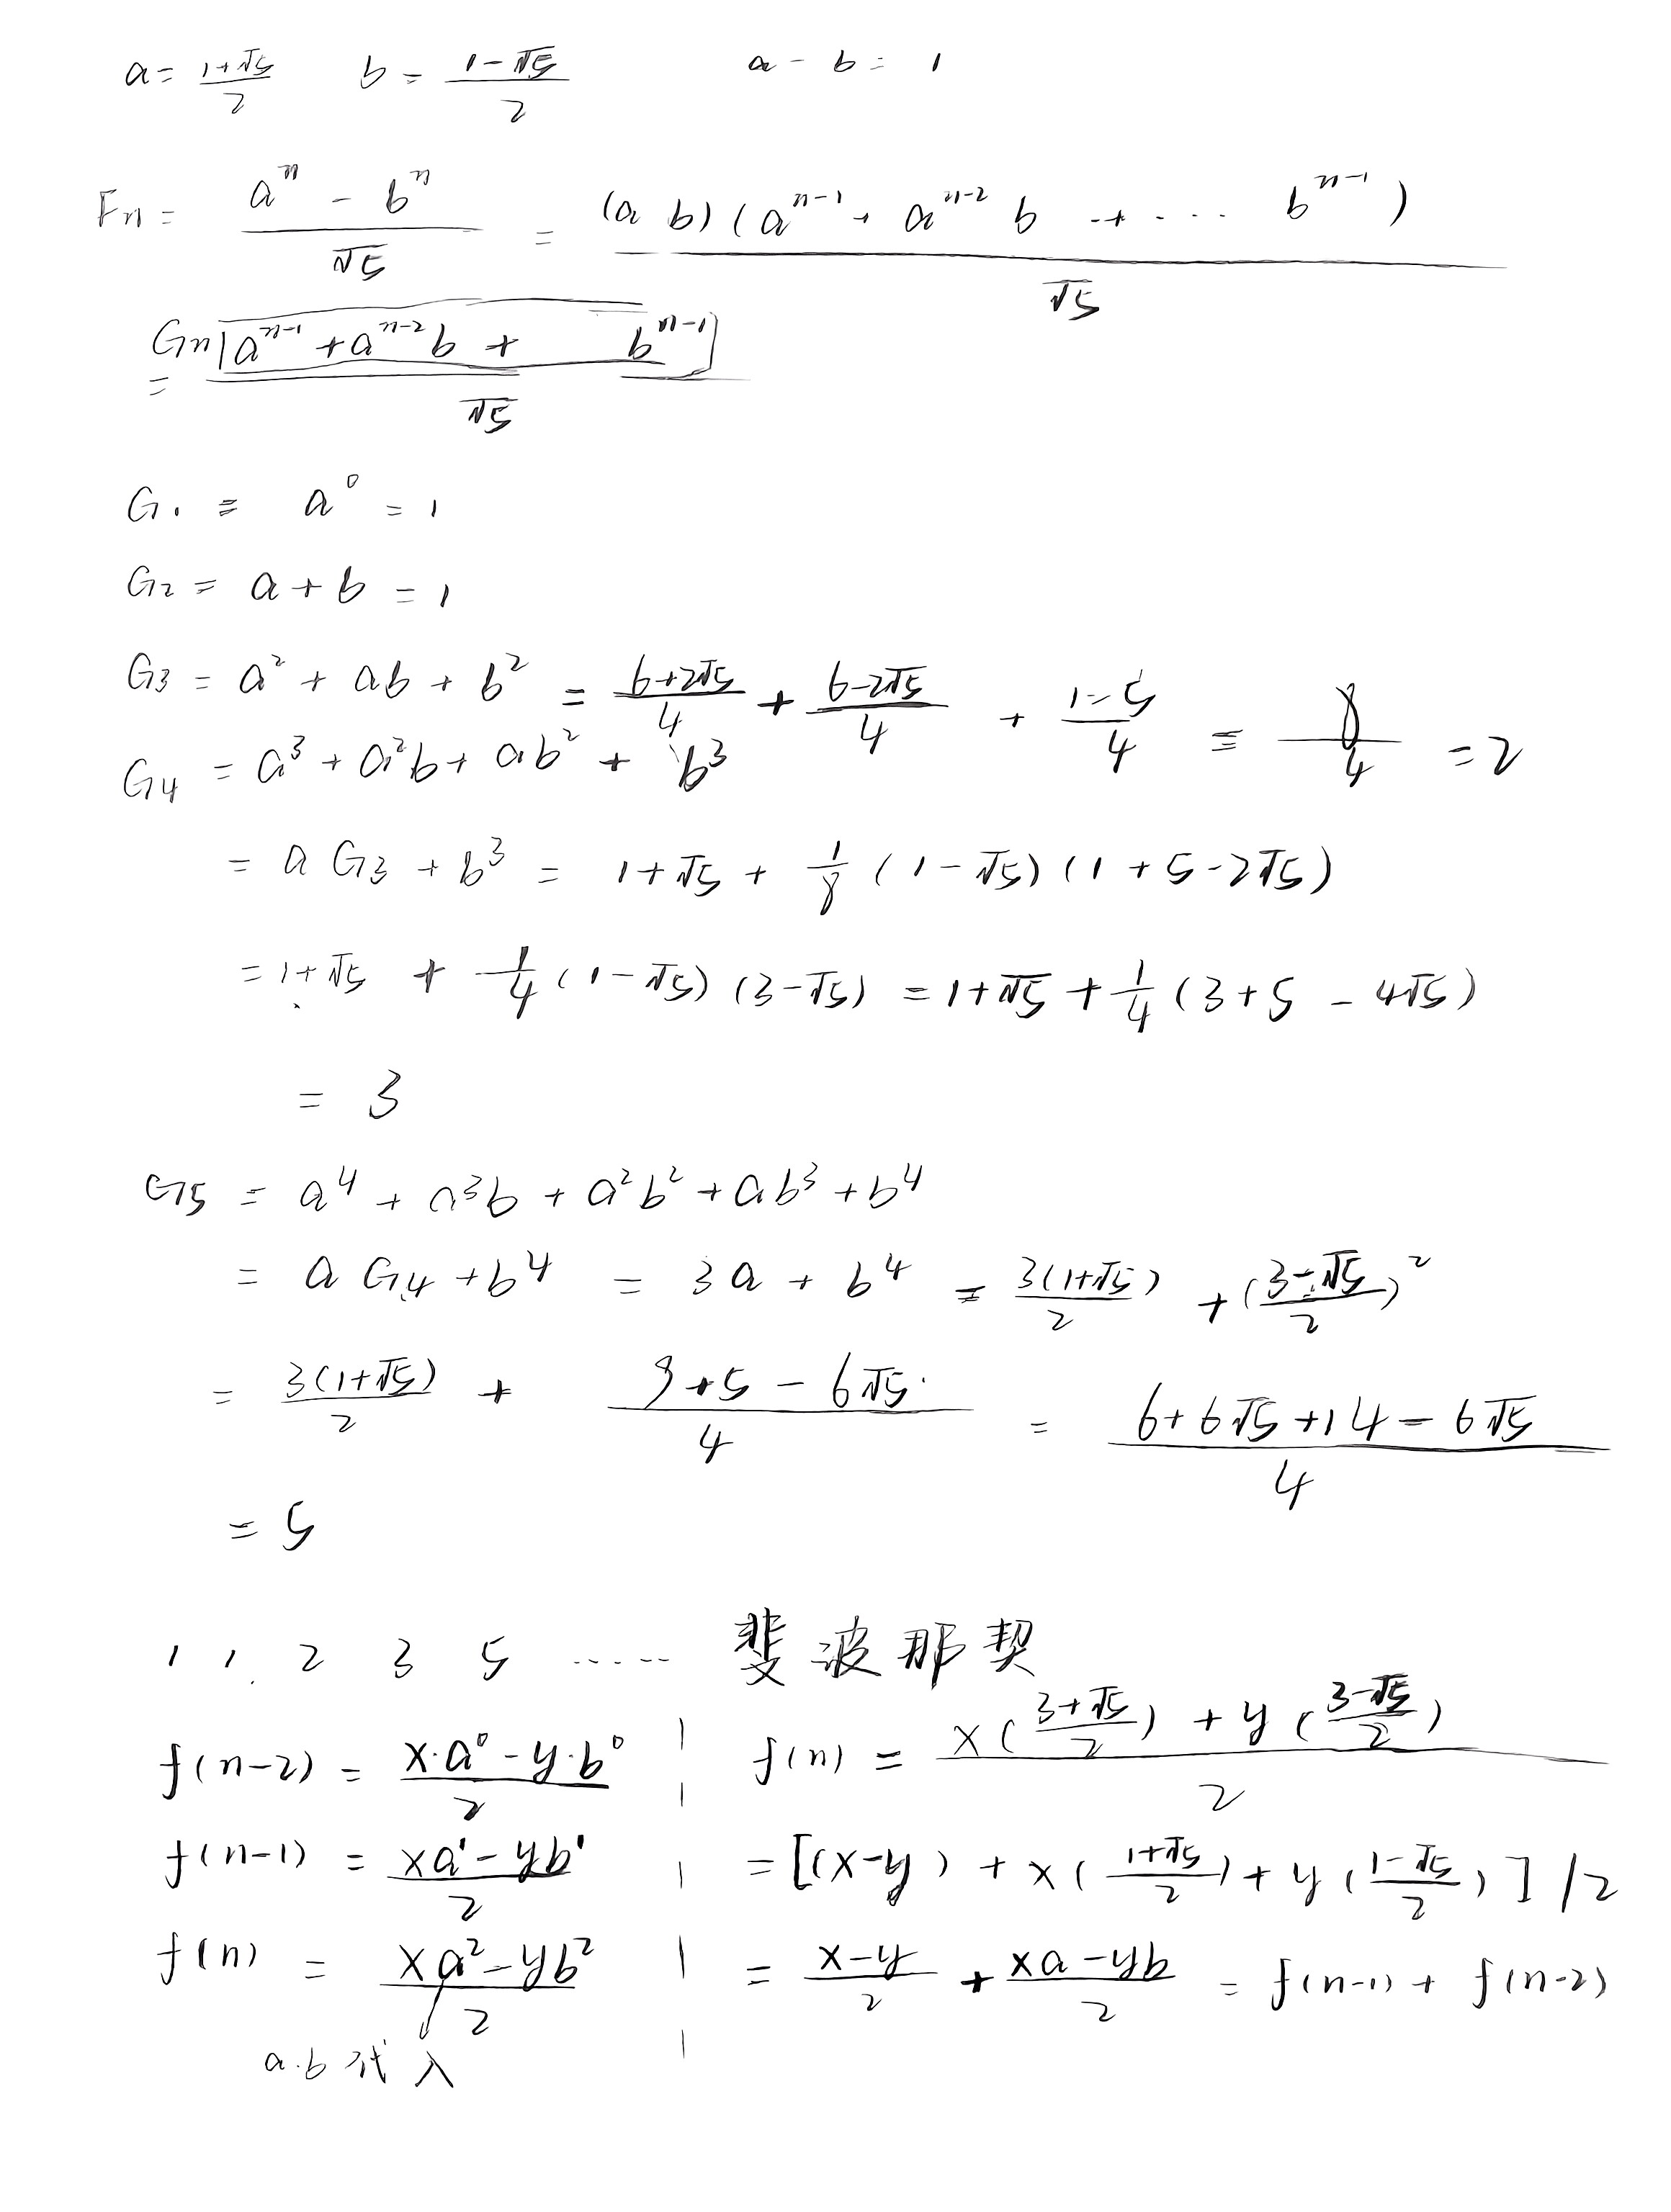 a = (1+√5)/2 b = (1-√5)/2 a - b = 1
Fn = (a^n - b^n)/√5 = (a b)(a^(n-1) + a^(n-2) b + ···· b^(n-1))/√5
= Gn[a^(n-1) + a^(n-2) b + b^(n-1)]/√5
G1 = a^0 = 1
G2 = a + b = 1
G3 = a^2 + ab + b^2 = (6+2√5)/4 + (6-2√5)/4 + (1-5)/4 = 8/4 = 2
G4 = a^3 + a^2b + ab^2 + b^3
= a G3 + b^3 = 1+√5 + 1/8 (1-√5)(1+5-2√5)
= 1+√5 + 1/4 (1-√5)(3-√5) = 1+√5 + 1/4 (3+5 - 4√5)
= 3
G5 = a^4 + a^3b + a^2b^2 + ab^3 + b^4
= a G4 + b^4 = 3a + b^4 = 3(1+√5)/2 + ((3-√5)/2)^2
= 3(1+√5)/2 + (9+5-6√5)/4 = (6+6√5+14-6√5)/4
= 5
1 1. 2 3 5 ······ 斐波那契
f(n-2) = (x·a^0 - y·b^0)/2
f(n-1) = (xa^1 - yb^1)/2
f(n) = (xa^2 - yb^2)/2
a.b 代入
f(n) = (x((3+√5)/2) + y((3-√5)/2))/2
= [(x-y) + x((1+√5)/2) + y((1-√5)/2)] /2
= (x-y)/2 + (xa-yb)/2 = f(n-1) + f(n-2)